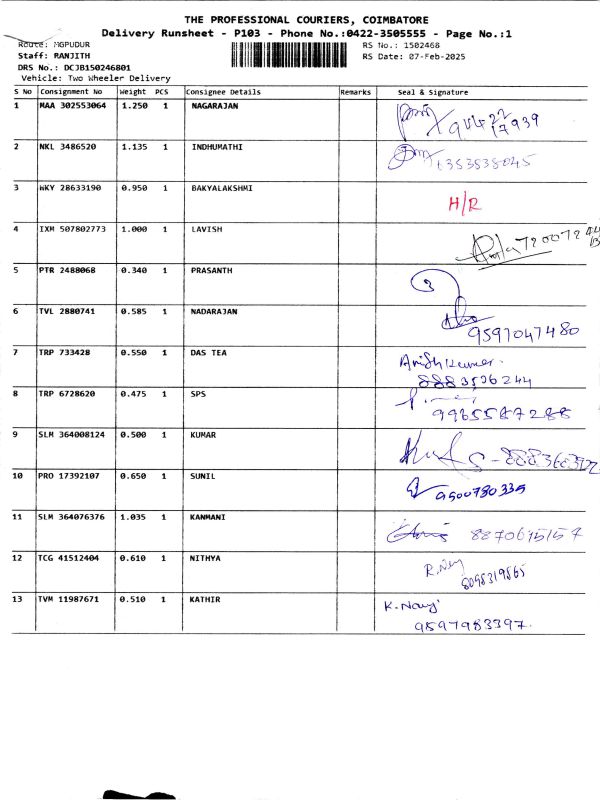 THE PROFESSIONAL COURIERS, COIMBATORE
Delivery Runsheet - P103 - Phone No.:0422-3505555 - Page No.:1
Route: MGPUDUR
RS No.: 1502468
Staff: RANJITH
RS Date: 07-Feb-2025
DRS No.: DCJB150246801
Vehicle: Two Wheeler Delivery
S No Consignment No Weight PCS Consignee Details Remarks Seal & Signature
1 MAA 302553064 1.250 1 NAGARAJAN
2 NKL 3486520 1.135 1 INDHUMATHI 6353538045
3 WKY 28633190 0.950 1 BAKYALAKSHMI H/R
4 IXM 507802773 1.000 1 LAVISH
5 PTR 2488068 0.340 1 PRASANTH
6 TVL 2880741 0.585 1 NADARAJAN 9597047480
7 TRP 733428 0.550 1 DAS TEA Anish Kumar.
8883536244
8 TRP 6728620 0.475 1 SPS
9965587288
9 SLM 364008124 0.500 1 KUMAR
10 PRO 17392107 0.650 1 SUNIL 9500780335
11 SLM 364076376 1.035 1 KANMANI
12 TCG 41512404 0.610 1 NITHYA
8098319865
13 TVM 11987671 0.510 1 KATHIR
9597983397.